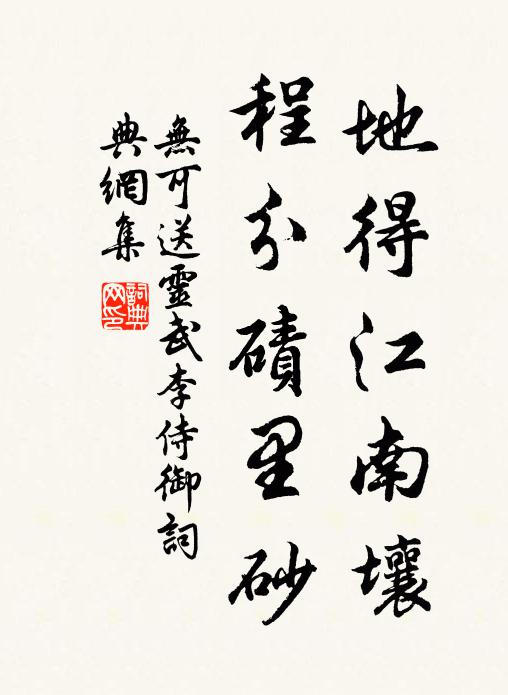 地得江南壤
程分磧里砂
無可送靈武李侍御詞
典網集
詞典
网印